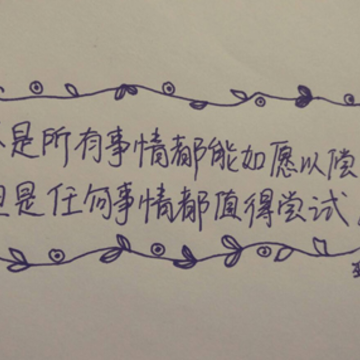 是所有事情都能如愿以偿，
但是任何事情都值得尝试